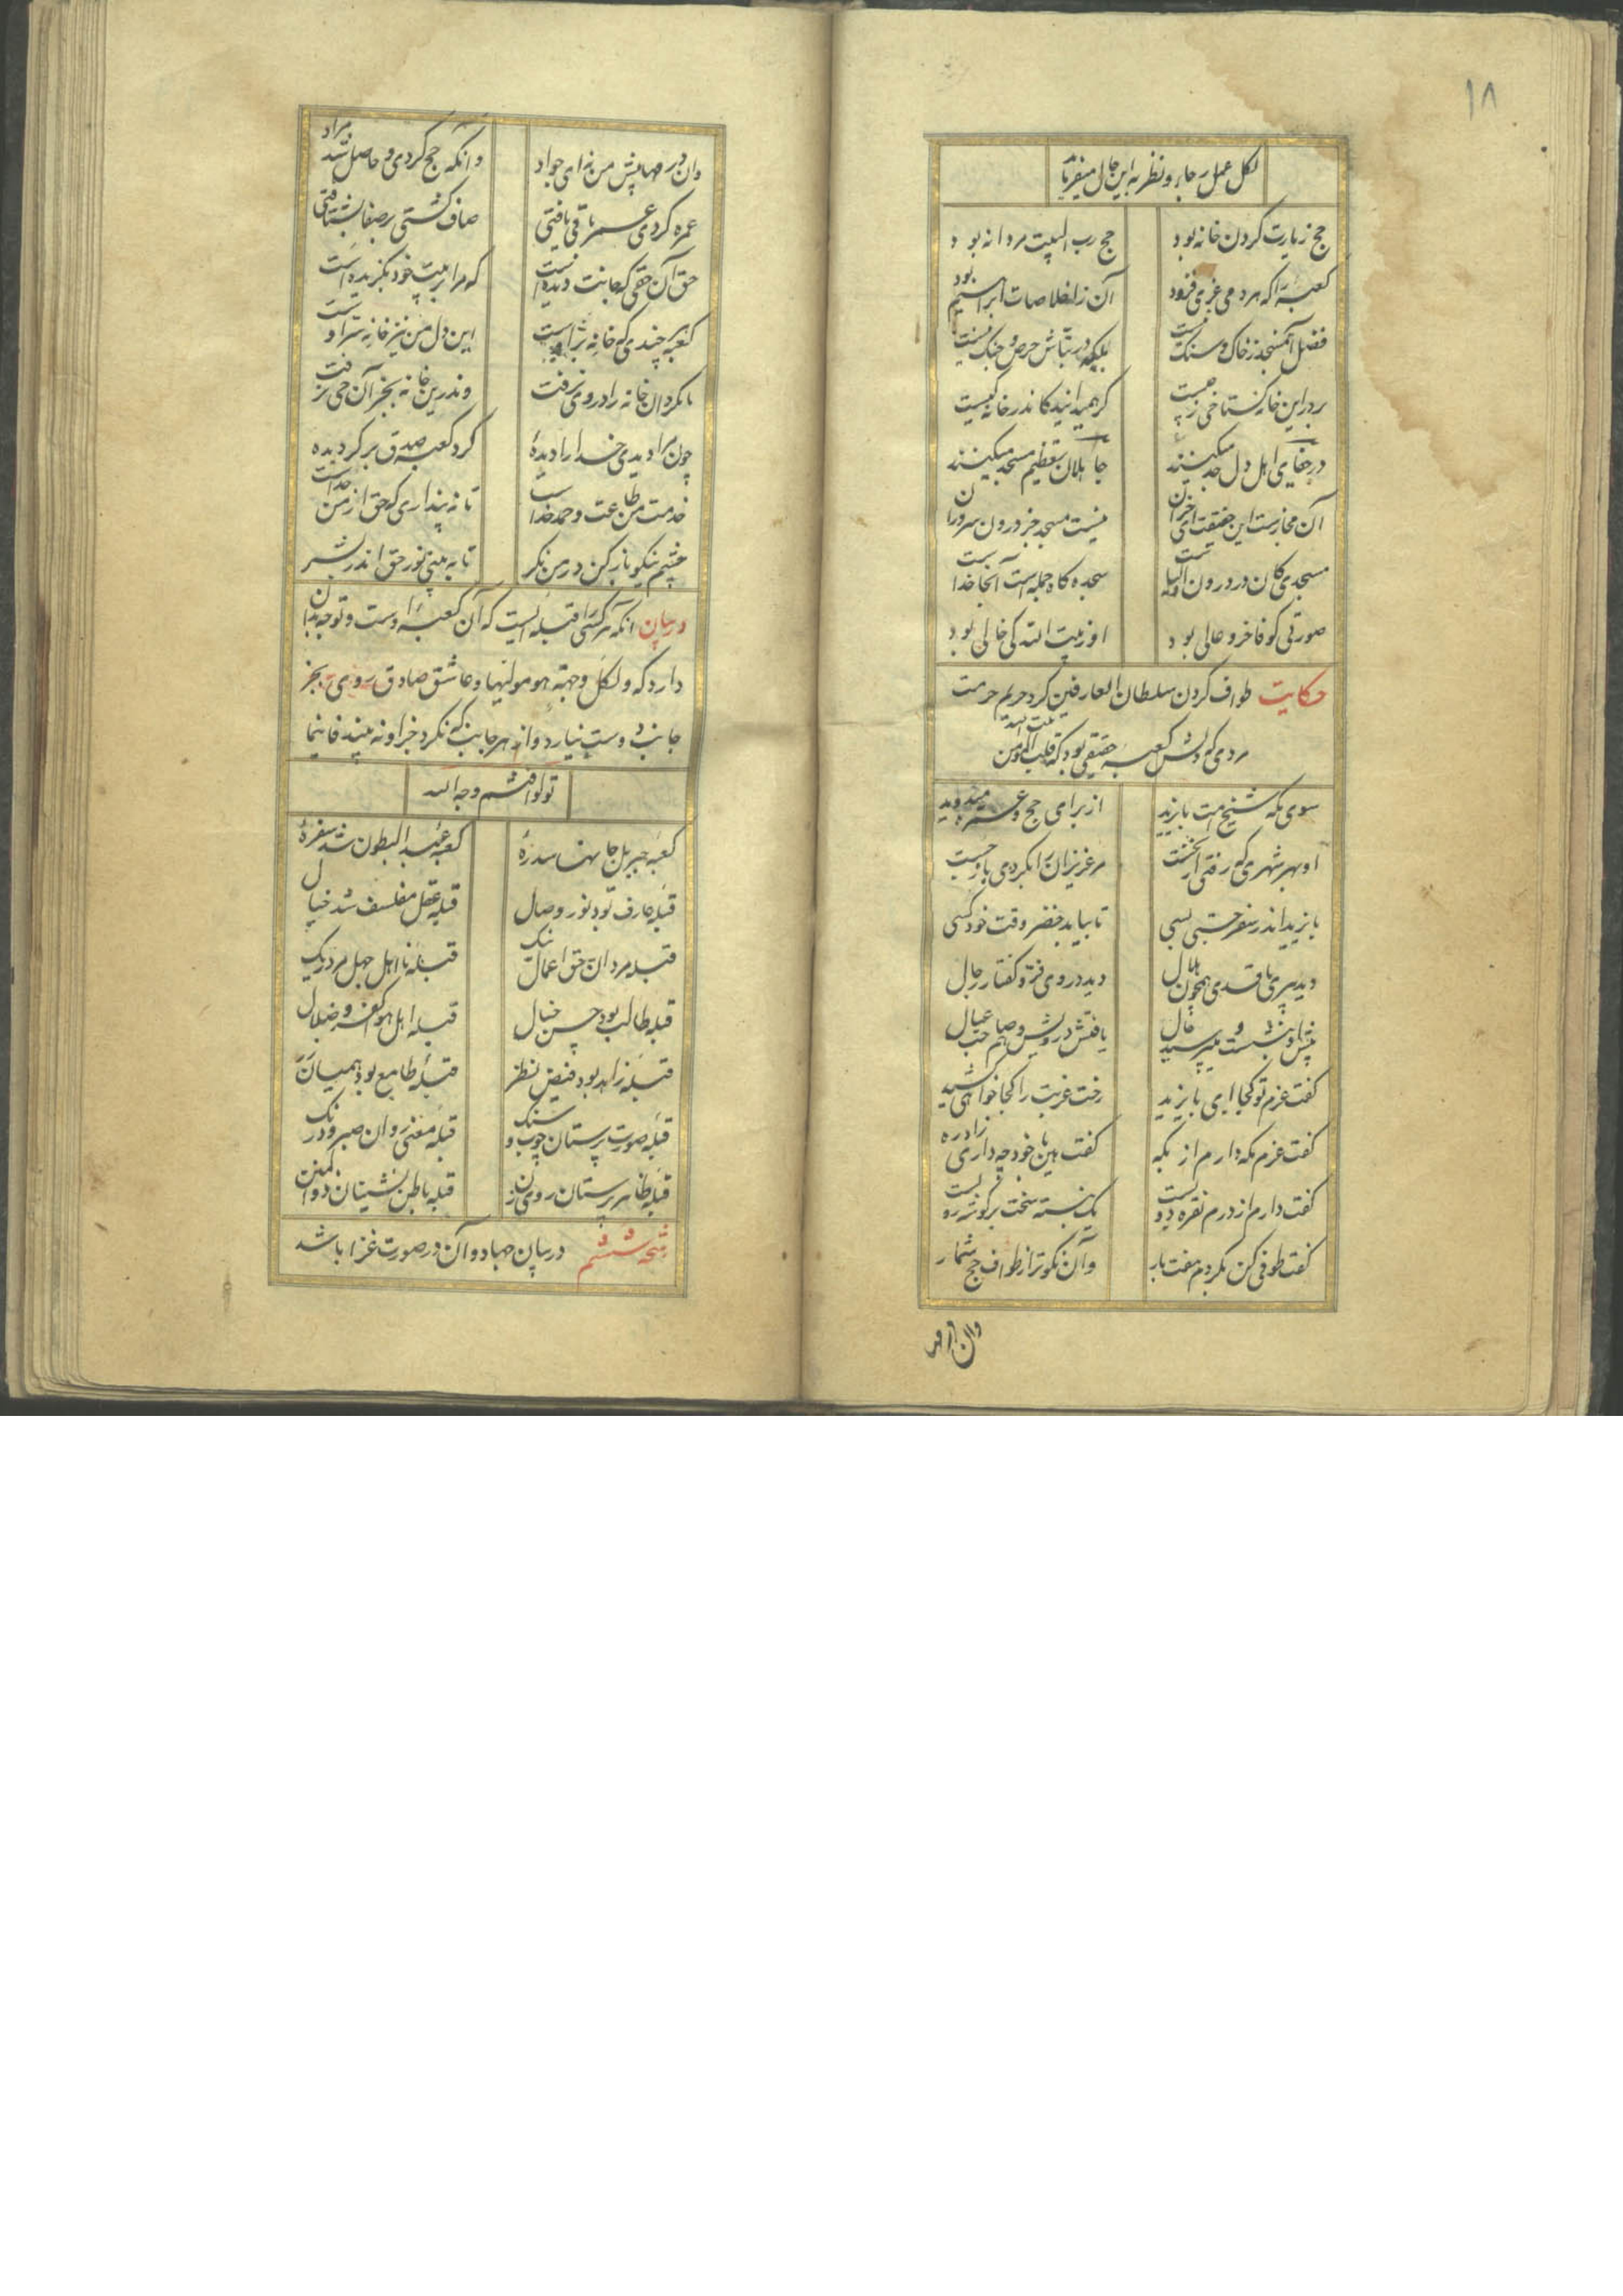 ۱۸
لکل عمل رجاء و نظر به این حال میفرماید
حج زیارت کردن خانه بود حج رب البیت مردانه بود
کعبه را که هر دمی عزی فزود آن ز اخلاصات ابراهیم بود
فضل آن مسجد ز خاک و سنگ نیست لیکه در بناش حرص و جنگ نیست
بر در این خانه گستاخی ز چیست گر همیدانید کاندر خانه کیست
جاهلان تعظیم مسجد میکنند در جفای اهل دل جد میکنند
آن مجازست این حقیقت ای خران نیست مسجد جز درون سروران
مسجدی کان در درون اولیاست سجده گاه جمله است آنجا خداست
صورتی کو فاخر و عالی بود او ز بیت الله کی خالی بود
حکایت طواف کردن سلطان العارفین گرد حریم حرمت
مردی که دلش کعبه حقیقی بود که قلب المؤمن بیت الله
سوی مکه شیخ امت بایزید از برای حج و عمره میدوید
او بهر شهری که رفتی از نخست مر عزیزان را بکردی بازجست
بایزید اندر سفر جستی بسی تا بیابد خضر وقت خود کسی
دید پیری با قدی همچون هلال دید در وی فر و گفتار رجال
پیش او بنشست و میپرسید حال یافتش درویش و هم صاحب عیال
گفت عزم تو کجا ای بایزید رخت غربت را کجا خواهی کشید
گفت عزم مکه دارم از بگه گفت هین با خود چه داری زاد ره
گفت دارم از درم نقره دویست نک بسته سخت بر گوشه ردیست
گفت طوفی کن بگردم هفت بار وآن نکوتر از طواف حج شمار
وان درمها
وان درمها پیش من نه ای جواد وانکه حج کردی و حاصل شد مراد
عمره کردی عمر باقی یافتی صاف گشتی بر صفا بشتافتی
حق آن حقی که جانت دیده است که مرا بر بیت خود بگزیده است
کعبه هر چندی که خانه بر اوست این دل من نیز خانه سر اوست
تا بکرد آن خانه را در وی نرفت وندرین خانه بجز آن حی نرفت
چون مرا دیدی خدا را دیدهٔ گرد کعبه صدق بر گردیده
خدمت من طاعت و حمد خداست تا نه پنداری که حق از من جداست
چشم نیکو باز کن در من نگر تا به بینی نور حق اندر بشر
در بیان آنکه هر کسی را قبله ایست که آن کعبه اوست و توجه بدان
دارد که ولکل وجهة هو مولیها و عاشق صادق روی بجز
جانب دوست نیارد و از هر جانب که نگرد جز او نه بیند فاینما
تولوا فثم وجه الله
کعبه جبریل جانها سدرهٔ کعبه عبد البطون شد سفرهٔ
قبله عارف بود نور وصال قبله عقل مفلسف شد خیال
قبله مردان حق اعمال نیک قبله نااهل جهل مردریک
قبله طالب بود حسن خیال قبله اهل هوا کفر و ضلال
قبله زاهد بود فیض نظر قبلهٔ طامع بود همیان زر
قبله صورت پرستان چوب و سنگ قبله معنی روان صبر و درنگ
قبله ظاهر پرستان روی زن قبله باطن نشینان ذوالمنن
رشحه ششم در بیان جهاد و آن در صورت غزا باشد